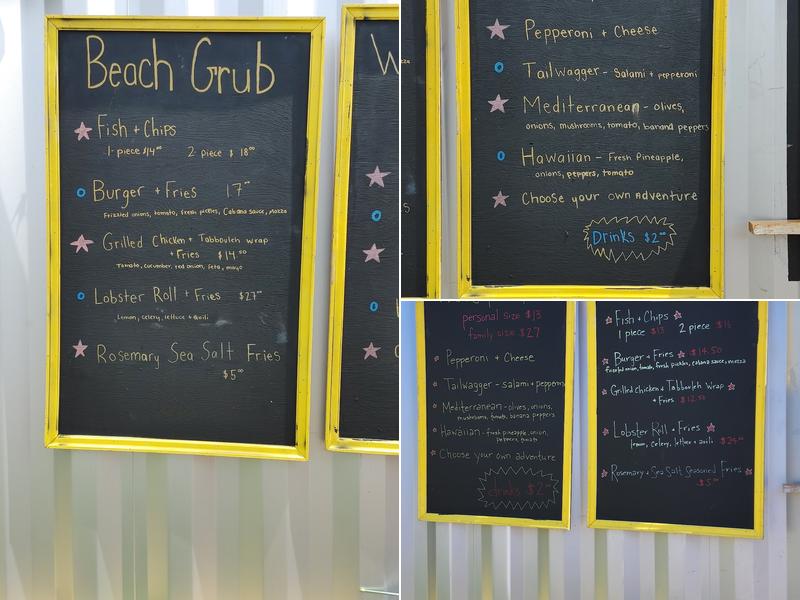 Beach Grub
Fish + Chips
1-piece $14⁰⁰ 2 piece $ 18⁰⁰
Burger + Fries 17⁰⁰
Frizzled onions, tomato, fresh pickles, Cabana sauce, mozza
Grilled Chicken + Tabbouleh wrap
+ Fries $14⁵⁰
Tomato, cucumber, red onion, feta, mayo
Lobster Roll + Fries $27⁰⁰
Lemon, celery, lettuce + aioli
Rosemary Sea Salt Fries
$5⁰⁰
W
Pepperoni + Cheese
Tailwagger - Salami + pepperoni
Mediterranean - olives,
onions, mushrooms, tomato, banana peppers
Hawaiian - Fresh Pineapple,
onions, peppers, tomato
Choose your own Adventure
Drinks $2⁰⁰
personal size $13
family size $27
Pepperoni + Cheese
Tailwagger - salami + pepperoni
Mediterranean - olives, onions,
mushrooms, tomato, banana peppers
Hawaiian - fresh pineapple, onion,
peppers, tomato
Choose your own adventure
drinks $2⁰⁰
Fish + Chips
1 piece $13 2 piece $16
Burger + Fries $14.50
frizzled onion, tomato, fresh pickles, cabana sauce, mozza
Grilled Chicken + Tabbouleh Wrap
+ Fries $12.50
Lobster Roll + Fries
lemon, celery, lettuce + aioli
Rosemary + Sea Salt Seasoned Fries
$5⁰⁰